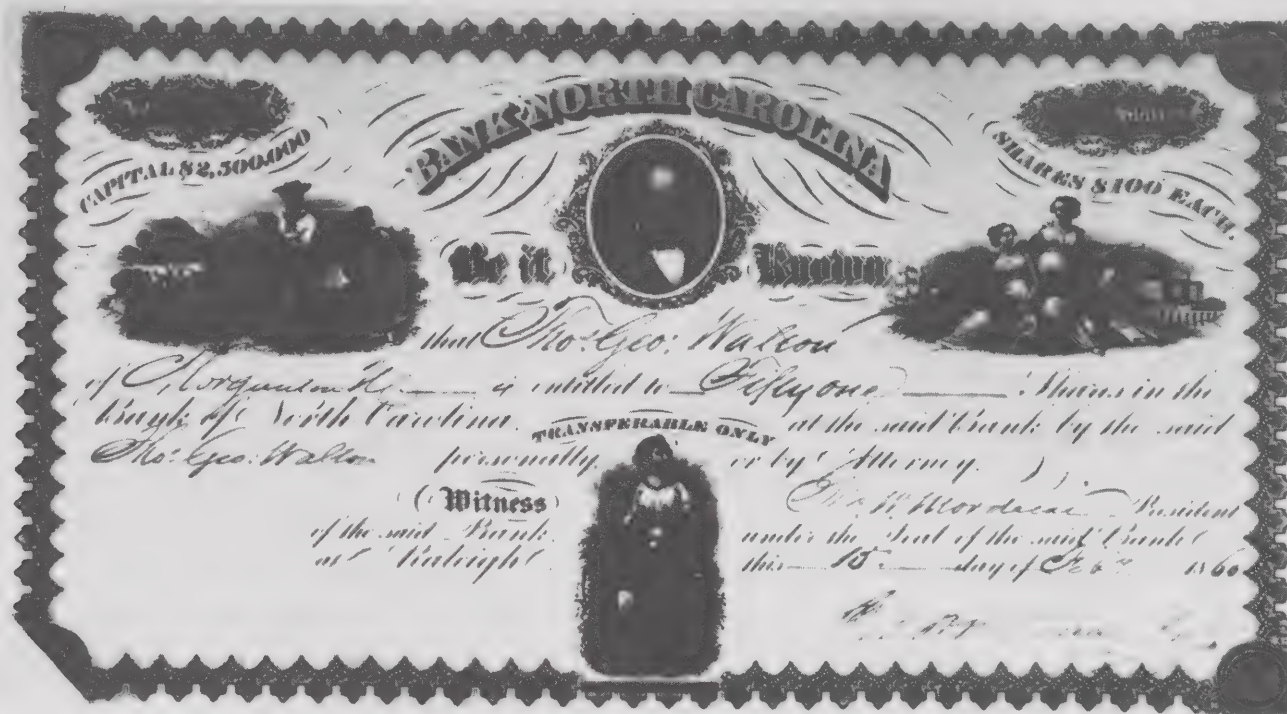 BANK NORTH CAROLINA
CAPITAL $2,500,000
SHARES $100 EACH.
Be it Known
that Thos. Geo: Walton
of Morganton NC is entitled to Fifty one Shares in the
Bank of North Carolina. TRANSFERABLE ONLY at the said Bank by the said
Thos. Geo: Walton personally or by Attorney.
Witness Geo. W. Mordecai President
of the said Bank under the Seal of the said Bank
at Raleigh this 15 day of Feby. 1860